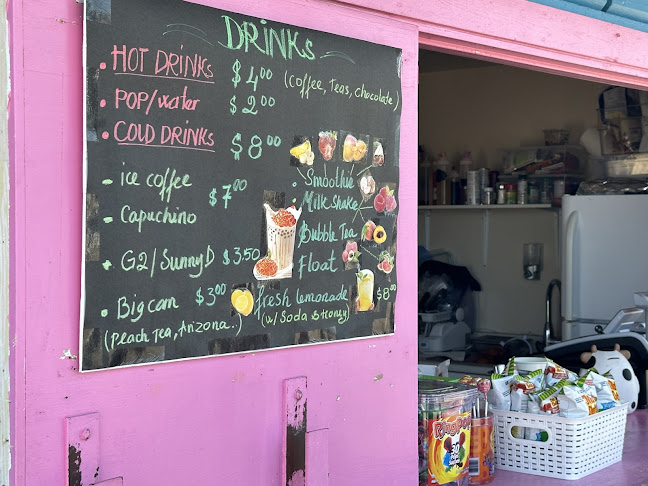 DRINKS
• HOT DRINKS $4.00 (Coffee, Teas, Chocolate)
• POP/water $2.00
• COLD DRINKS $8.00
- ice coffee $7.00
- Capuchino
• G2/SunnyD $3.50
• Big can $3.00
(Peach Tea, Arizona.)
• Smoothie
Milk shake
Bubble Tea
Float
fresh lemonade $8.00
(w/ Soda & Honey)
Ring Pop
30